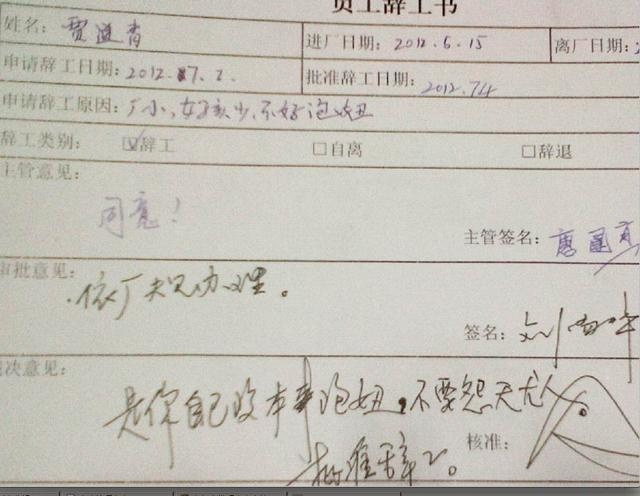 员工辞工书
姓名：贾道青 进厂日期：2012.5.15 离厂日期：
申请辞工日期：2012.7.2. 批准辞工日期：2012.7.4
申请辞工原因：厂小，女孩少，不好泡妞
辞工类别： ☑辞工 □自离 □辞退
主管意见：
同意！
主管签名：
审批意见：
依厂规办理。
签名：刘
决意见：
是你自己没本事泡妞，不要怨天尤人。
核准：
批准辞工。